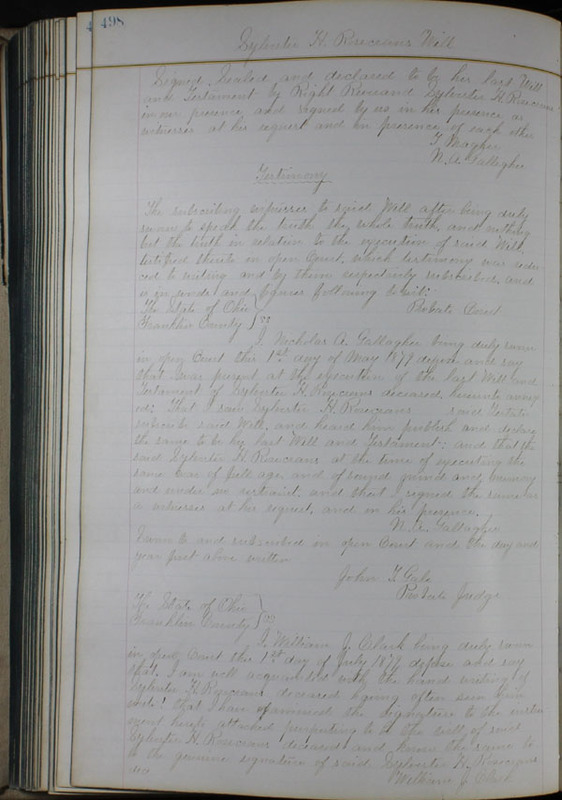 498
Sylvester H. Rosecrans Will
Signed, Sealed and declared to be his last Will
and Testament by Right Reverend Sylvester H. Rosecrans
in our presence and signed by us in his presence as
witnesses at his request and in presence of each other
N. A. Gallagher
Testimony
The subscribing witnesses to said Will after being duly
sworn to speak the truth the whole truth, and nothing
but the truth in relation to the execution of said Will,
testified thereto in open Court, which testimony was redu
ced to writing and by them respectively subscribed, and
is in words and figures following towit:
The State of Ohio } Probate Court
Franklin County } SS
I, Nicholas A. Gallagher being duly sworn
in open Court this 1st day of May 1879 depose and say
that I was present at the execution of the last Will and
Testament of Sylvester H. Rosecrans deceased, hereunto annex
ed: That I saw Sylvester H. Rosecrans said Testator
subscribe said Will, and heard him publish and declare
the same to be his last Will and Testament; and that the
said Sylvester H. Rosecrans at the time of executing the
same was of full age, and of sound mind and memory
and under no restraint, and that I signed the same as
a witness at his request, and in his presence.
N. A. Gallagher
Sworn to and subscribed in open Court and the day and
year first above written
John T. Gale
Probate Judge
The State of Ohio }
Franklin County } SS
I, William J. Clark being duly sworn
in open Court this 1st day of July 1879 depose and say
that I am well acquainted with the hand writing of
Sylvester H. Rosecrans deceased having often seen him
write: that I have examined the signature to the instru
ment hereto attached purporting to be the will of said
Sylvester H. Rosecrans deceased and know the same to
be the genuine signature of said Sylvester H. Rosecrans
William J. Clark